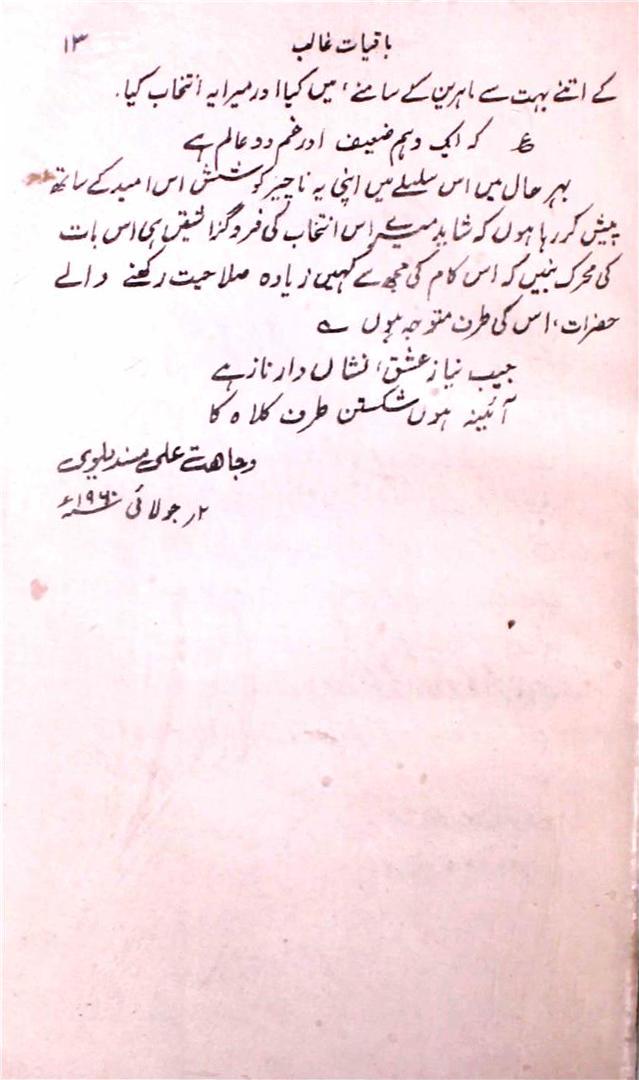 باقیات غالب ۱۳
کے اتنے بہت سے ماہرین کے سامنے، میں کیا اور میرا یہ انتخاب کیا۔
ع کہ ایک وہم ضعیف اور غم دو عالم ہے
بہر حال میں اس سلسلے میں اپنی یہ ناچیز کوشش اس امید کے ساتھ
پیش کر رہا ہوں کہ شاید میرے اس انتخاب کی فروگزاشتیں ہی اس بات
کی محرک بنیں کہ اس کام کی مجھ سے کہیں زیادہ صلاحیت رکھنے والے
حضرات، اس کی طرف متوجہ ہوں ؎
جیب نیاز عشق، نشاں دار ناز ہے
آئینہ ہوں شکستن طرف کلاہ کا
وجاہت علی سندیلوی
۲ر جولائی ۱۹۶۰ء